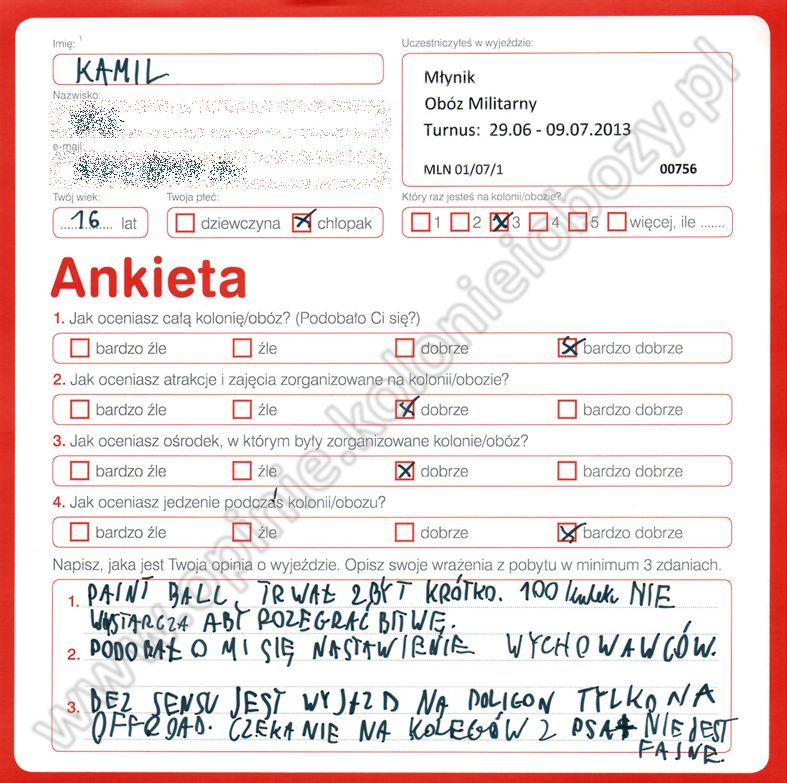 Imię:
Uczestniczyłeś w wyjeździe:
KAMIL
Młynik
Obóz Militarny
Turnus: 29.06 - 09.07.2013
MLN 01/07/1 00756
Nazwisko:
e-mail:
Twój wiek: Twoja płeć: Który raz jesteś na kolonii/obozie?
16 lat dziewczyna chłopak 1 2 3 4 5 więcej, ile .......
Ankieta
1. Jak oceniasz całą kolonię/obóz? (Podobało Ci się?)
bardzo źle źle dobrze bardzo dobrze
2. Jak oceniasz atrakcje i zajęcia zorganizowane na kolonii/obozie?
bardzo źle źle dobrze bardzo dobrze
3. Jak oceniasz ośrodek, w którym były zorganizowane kolonie/obóz?
bardzo źle źle dobrze bardzo dobrze
4. Jak oceniasz jedzenie podczas kolonii/obozu?
bardzo źle źle dobrze bardzo dobrze
Napisz, jaka jest Twoja opinia o wyjeździe. Opisz swoje wrażenia z pobytu w minimum 3 zdaniach.
1. PAINT BALL TRWAŁ ZBYT KRÓTKO. 100 kulek NIE
WYSTARCZA ABY ROZEGRAĆ BITWĘ.
2. PODOBAŁO MI SIĘ NASTAWIENIE WYCHOWAWCÓW.
3. BEZ SENSU JEST WYJAZD NA POLIGON TYLKO NA
OFFROAD. CZEKANIE NA KOLEGÓW Z NIE JEST
FAJNE.
www.opinie.kolonieiobozy.pl